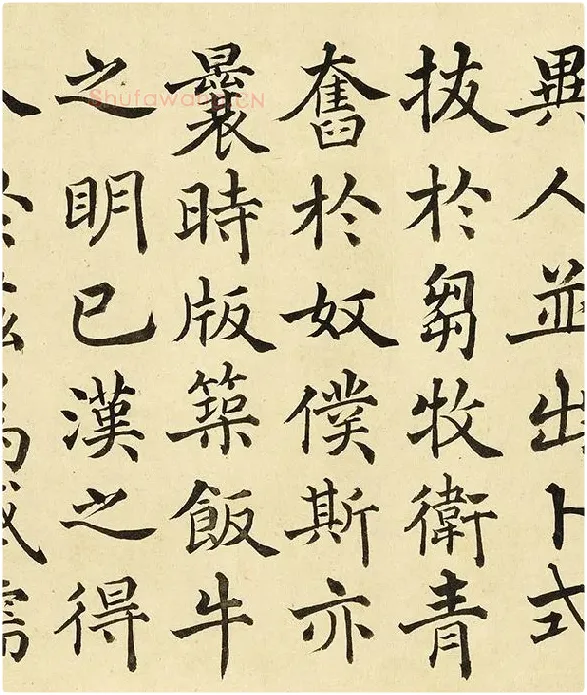 異人並出卜式
拔於芻牧衛青
奮於奴僕斯亦
曩時版築飯牛
之明已漢之得
Shufawang.CN